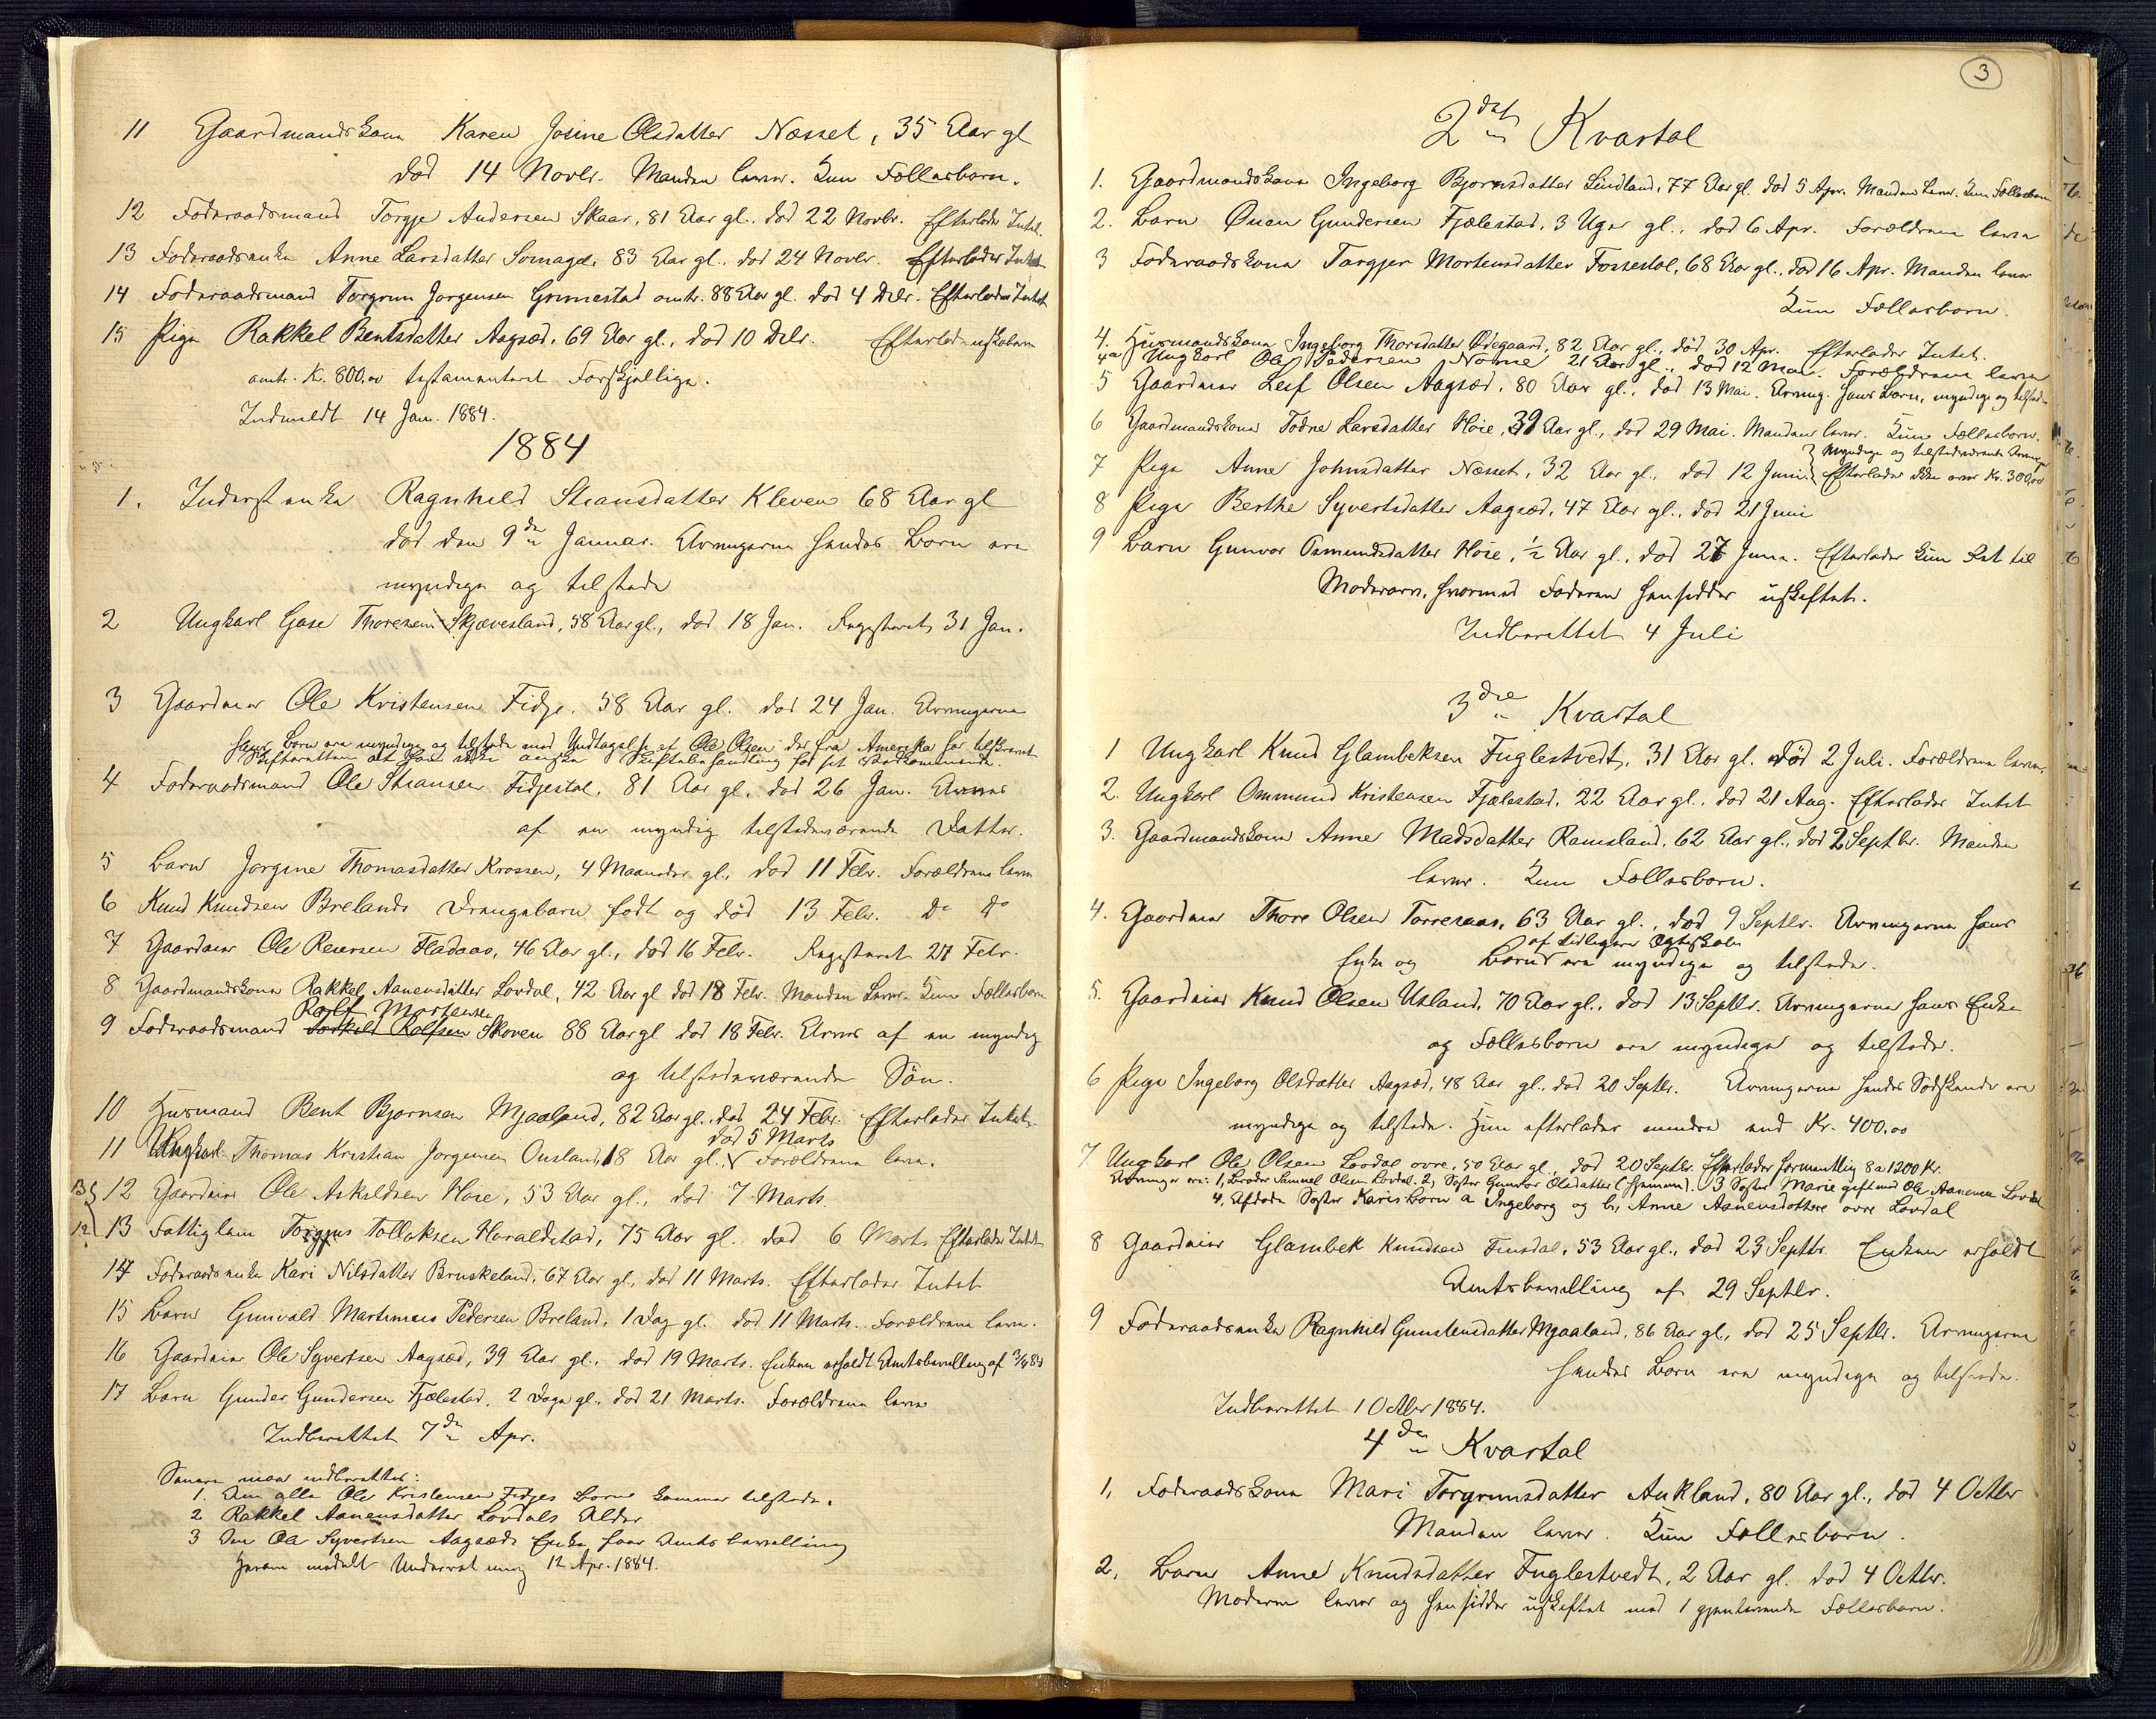 11 Gaardmandskone Karen Josine Olsdatter Næsset, 35 Aar gl
død 14 Novbr. Manden lever. Kun Fællesbørn.
12 Føderaadsmand Torgje Andersen Skaar, 81 Aar gl. død 22 Novbr. Efterlader Intet.
13 Føderaadsenke Anne Larsdatter 83 Aar gl. død 24 Novbr. Efterlader Intet
14 Føderaadsmand Torgrim Jørgensen Grimestad omtr. 88 Aar gl. død 4 Dcbr. Efterlader Intet
15 Pige Rakkel Bentsdatter Aagsæd, 69 Aar gl., død 10 Dcbr.
omtr. K. 800,00 testamenteret Forskjellige.
Indmeldt 14 Jan. 1884.
1884
1. Inderstenke Ragnhild Stiansdatter Kleven 68 Aar gl
død den 9de Januar. Arvingerne hendes Børn ere
myndige og tilstede
2 Ungkarl Gase Thoresen Skjævesland, 58 Aar gl., død 18 Jan. Registreret 31 Jan.
3 Gaardmar Ole Kristensen Fidje. 58 Aar gl. død 24 Jan. Arvingerne
hans Børn ere myndige og tilstede med Undtagelse af Ole Olsen der fra Amerika har tilskrevet
Skifteretten at han ikke ønsker Skiftebehandling for sit Vedkommende.
4 Føderaadsmand Ole Stiansen Fidjestøl, 81 Aar gl. død 26 Jan. Arves
af en myndig tilstedeværende Datter.
5 Barn Jørgine Thomasdatter Krossen, 4 Maaneder gl., død 11 Febr. Forældrene leve
6 Knud Knudsen Brelands Drengebarn født og død 13 Febr. do do
7 Gaardmar Ole Reiersen Fladaas, 46 Aar gl., død 16 Febr. Registreret 27 Febr.
8 Gaardmandskone Rakkel Aanensdatter Løvdal, 42 Aar gl død 18 Febr. Manden lever. Kun Fællesbørn
Rolf Mortensen
9 Føderaadsmand Torkild Rolfsen Skoven 88 Aar gl død 18 Febr. Arves af en myndig
og tilstedeværende Søn.
10 Husmand Bent Bjørnsen Mjaaland, 82 Aar gl. død 24 Febr. Efterlader Intet.
død 5 Marts
11 Ungkarl Thomas Kristian Jørgensen Ousland, 18 Aar gl., Forældrene leve.
13 12 Gaardmar Ole Askildsen Høie, 53 Aar gl., død 7 Marts.
12 13 Fattiglem Torgjus Tallaksen Haraldstad, 75 Aar gl. død 6 Marts Efterlader Intet
14 Føderaadsenke Kari Nilsdatter Bruskeland, 67 Aar gl., død 11 Marts. Efterlader Intet
15 Barn Gunvald Martinius Pedersen Breland, 1 Dag gl. død 11 Marts. Forældrene leve.
16 Gaardmar Ole Syvertsen Aagsæd, 39 Aar gl. død 19 Marts. Enken erholdt Amtsbevilling af 3/4 84
17 Barn Gunder Gundersen Fjælestad, 2 Dage gl., død 21 Marts. Forældrene leve
Indberettet 7de Apr.
Senere maa indberettes:
1. Om alle Ole Kristensen Fidjes Børn kommer tilstede.
2 Rakkel Aanensdatter Løvdals Alder.
3 Om Ole Syvertsen Aagsæds Enke faar Amtsbevilling
Herom meddelt Underretning 12 Apr. 1884.
3
2det Kvartal
1. Gaardmandskone Ingeborg Bjørnsdatter Lindland, 77 Aar gl. død 5 Apr. Manden lever. Kun Fællesbørn
2. Barn Ouen Gundersen Fjælestad, 3 Uger gl., død 6 Apr. Forældrene leve
3 Føderaadskone Torgjer Mortensdatter Fossestøl, 68 Aar gl., død 16 Apr. Manden lever
Kun Fællesbørn.
4. Husmandskone Ingeborg Thorsdatter Ødegaard, 82 Aar gl., død 30 Apr. Efterlader Intet.
4a Ungkarl Ole Pedersen Nome 21 Aar gl., død 12 Mai. Forældrene leve
5 Gaardmar Leif Olsen Aagsæd, 80 Aar gl., død 13 Mai. Arving. hans Børn, myndige og tilsted.
6 Gaardmandskone Todne Larsdatter Høie, 39 Aar gl., død 29 Mai. Manden lever. Kun Fællesbørn.
Myndige og tilstedeværende Arvinge
7 Pige Anne Johnsdatter Næsset, 32 Aar gl., død 12 Juni. Efterlader ikke over Kr. 300,00
8 Pige Berthe Syvertsdatter Aagsæd, 47 Aar gl., død 21 Juni
9 Barn Gunvor Osmundsdatter Høie, ½ Aar gl., død 27 Juni. Efterlader kun Ret til
Modersarv, hvormed Faderen hensidder uskiftet.
Indberettet 4 Juli
3die Kvartal
1 Ungkarl Knud Glambeksen Fuglestvedt, 31 Aar gl. død 2 Juli. Forældrene lever.
2. Ungkarl Ommund Kristensen Fjælestad, 22 Aar gl., død 21 Aug. Efterlader Intet
3. Gaardmandskone Anne Madsdatter Ramsland, 62 Aar gl., død 2 Septbr. Manden
lever. Kun Fællesbørn.
4. Gaardmar Thore Olsen Torresaas, 63 Aar gl., død 9 Septbr. Arvingerne hans
af tidligere Ægteskab
Enke og Børn ere myndige og tilstede.
5. Gaardmar Knud Olsen Usland, 70 Aar gl., død 13 Septbr. Arvingerne hans Enke
og Fællesbørn ere myndige og tilstede.
6 Pige Ingeborg Olsdatter Aagsæd, 48 Aar gl., død 20 Septbr. Arvingerne hendes Sødskende ere
myndige og tilstede. Hun efterlader mindre end Kr. 400,00
7 Ungkarl Ole Olsen Løvdal øvre, 50 Aar gl., død 20 Septbr. Efterlader formentlig 8 a 1200 Kr.
Arvinger ere: 1, Broder Samuel Olsen Løvdal. 2, Søster Gunvor Olsdatter (Hjemme). 3 Søster Marie gift med Ole Aanensen Løvdal
4, Afdøde Søster Karis Børn a Ingeborg og b, Anne Aanensdøttre øvre Løvdal
8 Gaardmar Glambek Knudsen Finsdal, 53 Aar gl., død 23 Septbr. Enken erholdt
Amtsbevilling af 29 Septbr.
9 Føderaadsenke Ragnhild Gunstensdatter Mjaaland, 86 Aar gl., død 25 Septbr. Arvingerne
hendes Børn ere myndige og tilstede.
Indberettet 1 Octbr 1884.
4de Kvartal
1, Føderaadskone Mari Torgrimsdatter Aukland, 80 Aar gl., død 4 Octbr
Manden lever. Kun Fællesbørn.
2, Barn Anne Knudsdatter Fuglestvedt, 2 Aar gl. død 4 Octbr.
Moderen lever og hensidder uskiftet med 1 gjenlevende Fællesbarn.